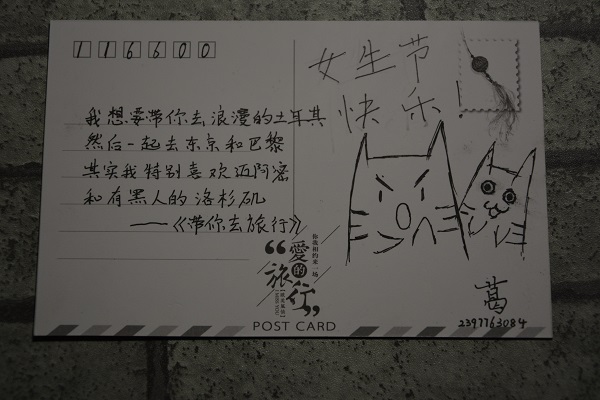 116600
女生节
快乐!
我想要带你去浪漫的土耳其
然后一起去东京和巴黎
其实我特别喜欢迈阿密
和有黑人的洛杉矶
——《带你去旅行》
你我相约来一场
“愛的
旅行”
POST CARD
葛
2397763084